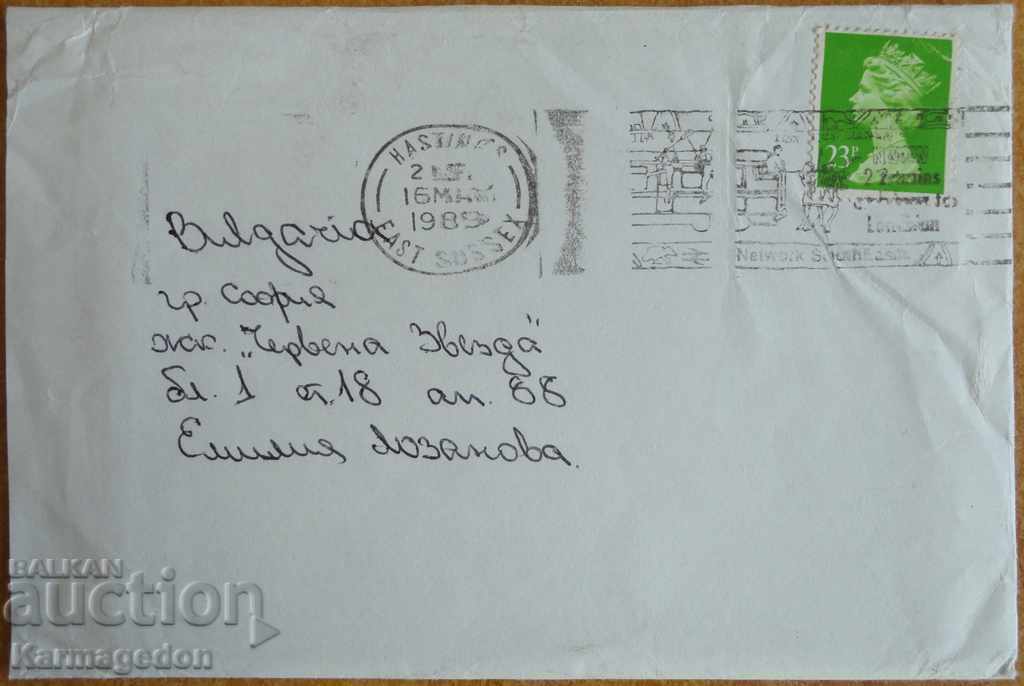 23P
HASTINGS
16 MAR
1989
EAST SUSSEX
London
Network SouthEast
Bulgaria
гр. София
жк. „Червена Звезда"
бл. 1 ет. 18 ап. 88
Емилия Лозанова.
BALKAN
auction
Karmagedon